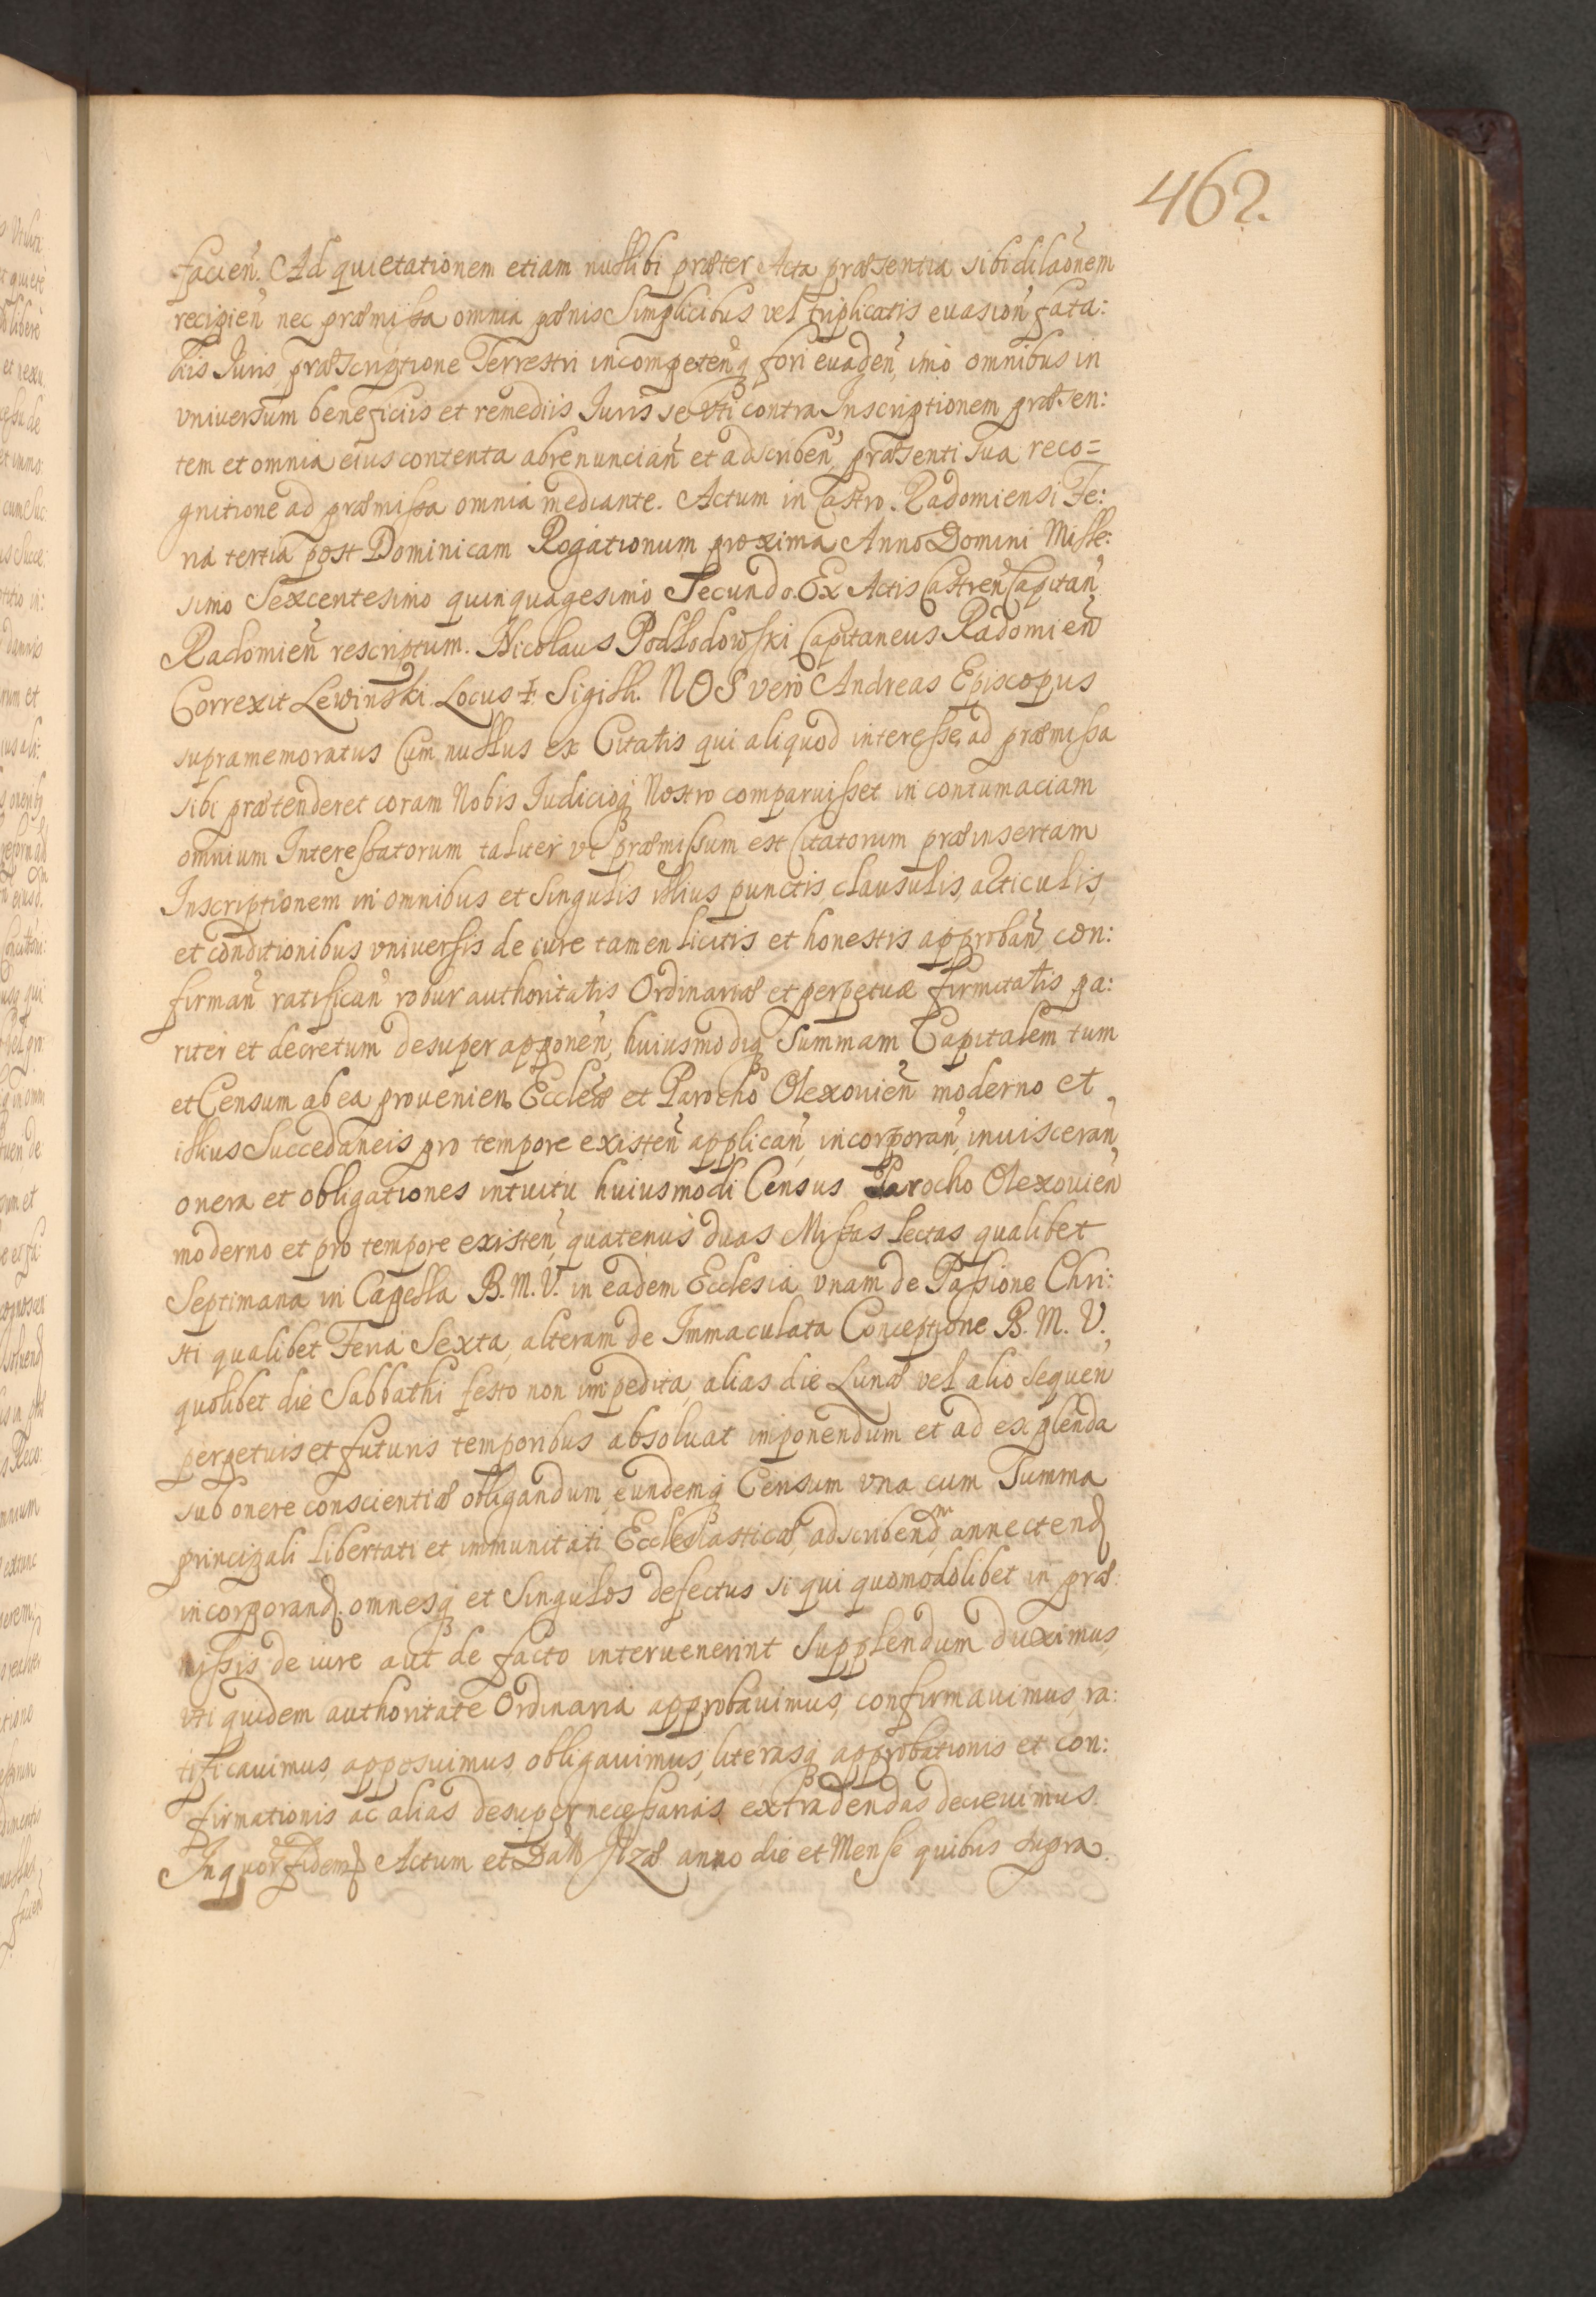 462.
facien̄. Ad quietationem etiam nullibi præter Acta præsentia sibi dilaõnem
recipien̄ nec præmissa omnia pænis Simplicibus vel triplicatis euasion̄ fata:
lis Iuris præscriptione Terrestri incompeten̄q fori euaden̄, imò omnibus in
vniuersum beneficiis et remediis Iuris se vti contra Inscriptionem præsen:
tem et omnia eius contenta abrenuncian̄ et adscriben̄, præsenti sua reco=
gnitione ad præmissa omnia mediante. Actum in Castro Radomiensi Fe:
ria tertia post Dominicam Rogationum proxima Anno Domini Mille:
simo Sexcentesimo quinquagesimo Secundo. Ex Actis Castren̄ Capitan̄
Radomien̄ rescriptum. Nicolaus Podlodowski Capitaneus Radomien̄
Correxit Lewinski. Locus ✝ Sigill. NOS verò Andreas Episcopus
supramemoratus Cum nullus ex Citatis qui aliquod interesse ad præmissa
sibi prætenderet coram Nobis Iudicioq Nostro comparuisset in contumaciam
omnium Interessatorum taliter vt præmissum est Citatorum præinsertam
Inscriptionem in omnibus et Singulis illius punctis, clausulis, articulis,
et conditionibus vniuersis de iure tamen licitis et honestis approban̄ con:
firman̄ ratifican̄ robur authoritatis Ordinariæ et perpetuæ firmitatis pa:
riter et decretum desuper apponen̄, huiusmodiq Summam Capitalem tum
et Censum ab ea prouenien. Eccleæ et Parocho Olexouien̄ moderno et
illius Succedaneis pro tempore existen̄ applican̄, incorporan̄, inuisceran̄,
onera et obligationes intuitu huiusmodi Census Parocho Olexouien̄
moderno et pro tempore existen̄, quatenus duas Missas lectas qualibet
Septimana in Capella B. M. V. in eadem Ecclesia vnam de Passione Chri:
sti qualibet Feria Sexta, alteram de Immaculata Conceptione B. M. V.,
quolibet die Sabbathi festo non impedita, alias die Lunæ vel alio sequen̄
perpetuis et futuris temporibus absoluat imponendum et ad explenda
sub onere conscientiæ obligandum, eundemq Censum vna cum Summa
principali libertati et immunitati Ecclesiasticæ, adscribend, annectend
incorporand. omnesq et Singulos defectus si qui quomodolibet in præ:
missis de iure aut de facto interuenerint supplendum duximus,
vti quidem authoritate Ordinaria approbauimus, confirmauimus, ra:
tificauimus, apposuimus, obligauimus, literasq approbationis et con:
firmationis ac alias desuper necessarias extradendas decreuimus.
In quor fidem Actum et Dat̄ Ilzæ anno die et Mense quibus supra.